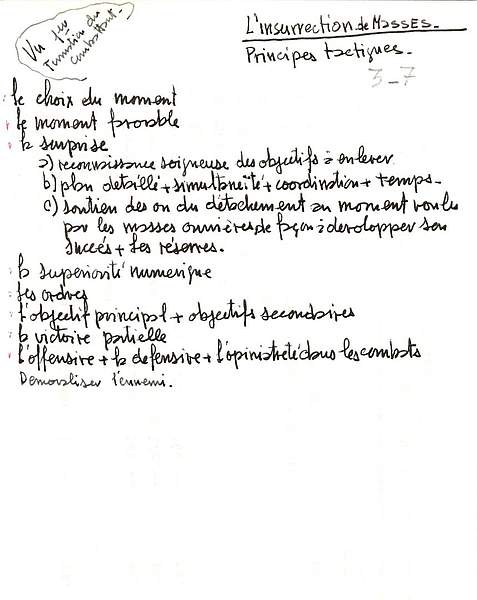 L'insurrection de Masses.
Principes tactiques.
3-7
le choix du moment
le moment favorable
la surprise
a) reconnaissance soigneuse des objectifs à enlever
b) plan détaillé + simultanéité + coordination + temps.
c) soutien des ou du détachement au moment voulu
par les masses ouvrières de façon à développer son
succés + les réserves.
la superiorité numerique
les ordres
l'objectif principal + objectifs secondaires
la victoire partielle
l'offensive + la defensive + l'opiniatreté dans les combats
Démoraliser l'ennemi.
Vu
combattant.